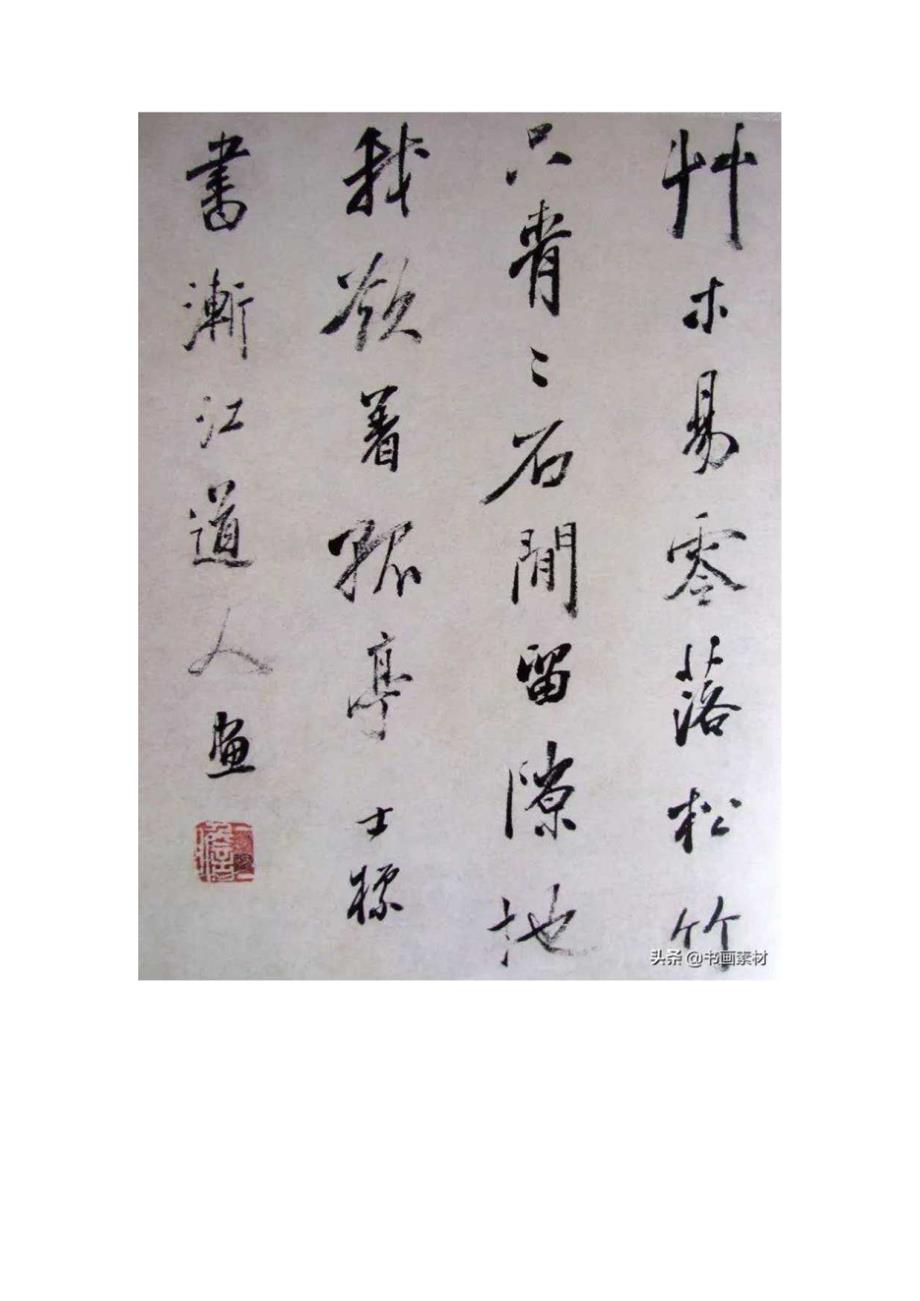 艸木易零落松竹
只青〻石間留隙地
我欲著孤亭 士標
書漸江道人畫
头条 @书画素材